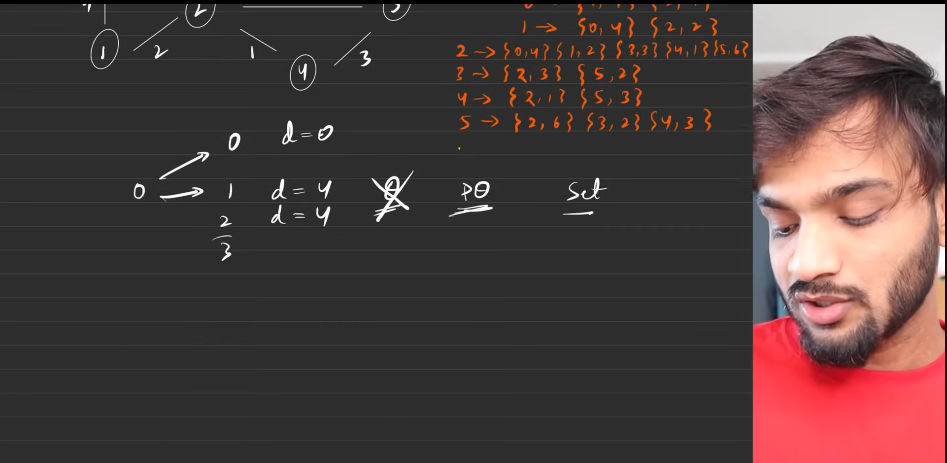 2
1 2 1 4 3
1 → {0,4} {2,2}
2 → {0,4} {1,2} {3,3} {4,1} {5,6}
3 → {2,3} {5,2}
4 → {2,1} {5,3}
5 → {2,6} {3,2} {4,3}
0 d=0
0 1 d=4 Q PQ Set
2 d=4
3